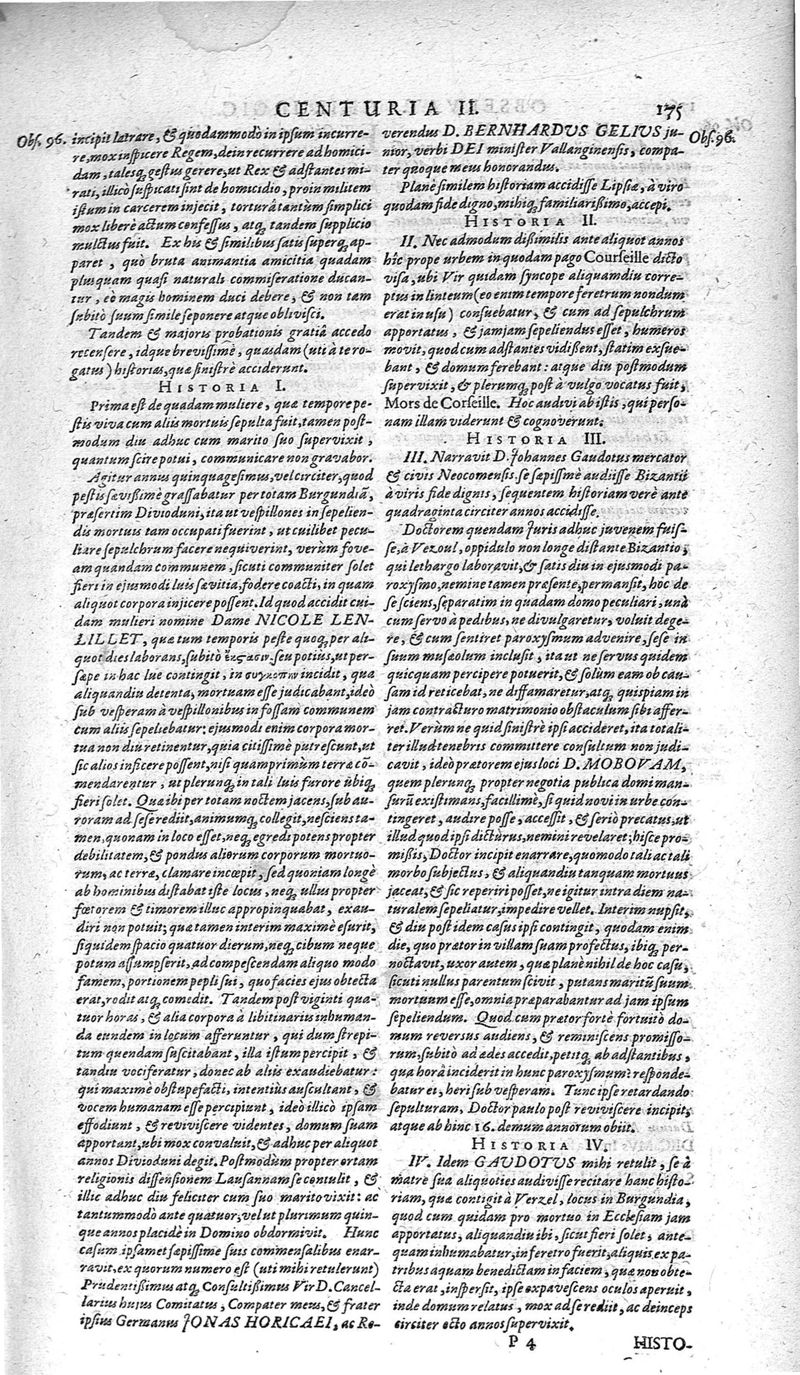 CENTURIA II. 175
Obs. 96. incipit latrare, & quodammodò in ipsum incurre-
re, mox inspicere Regem, dein recurrere ad homici-
dam, talesq; gestus gerere, ut Rex & adstantes mi-
rati, illicò suspicati sint de homicidio, proin militem
istum in carcerem injecit, torturâ tantùm simplici
mox liberè actum confessus, atq; tandem supplicio
mulctus fuit. Ex his & similibus satis superq; ap-
paret, quò bruta animantia amicitia quadam
plusquam quasi naturali commiseratione ducan-
tur, eò magis hominem duci debere, & non tam
subitò suum simile seponere atque oblivisci.
Tandem & majoris probationis gratiâ accedo
recensere, idque brevissimè, quasdam (uti à te ro-
gatus) historias, quæ sinistrè acciderunt.
HISTORIA I.
Prima est de quadam muliere, quæ tempore pe-
stis viva cum aliis mortuis sepulta fuit, tamen post-
modum diu adhuc cum marito suo supervixit,
quantum scire potui, communicare non gravabor.
Agitur annus quinquagesimus, vel circiter, quod
pestis sævissimè grassabatur per totam Burgundiã,
præsertim Divioduni, ita ut vespillones in sepelien-
dis mortuis tam occupati fuerint, ut cuilibet pecu-
liare sepulchrum facere nequiverint, verùm fove-
am quandam communem, sicuti communiter solet
fieri in ejusmodi luis sævitia, fodere coacti, in quam
aliquot corpora injicere possent. Id quod accidit cui-
dam mulieri nomine Dame NICOLE LEN-
LILLET, quæ tum temporis peste quoq; per ali-
quot dies laborans, subitò ἔκστασιν, seu potius, ut per-
sæpe in hac lue contingit, in συγκοπὴν incidit, qua
aliquandiu detenta, mortuam esse judicabant, ideò
sub vesperam à vespillonibus in fossam communem
cum aliis sepeliebatur: ejusmodi enim corpora mor-
tua non diu retinentur, quia citissimè putrescunt, ut
sic alios inficere possent, nisi quamprimùm terræ cõ-
mendarentur, ut plerunq; in tali luis furore ubiq;
fieri solet. Quæ ibi per totam noctem jacens, sub au-
roram ad sese rediit, animumq; collegit, nesciens ta-
men, quonam in loco esset, neq; egredi potens propter
debilitatem, & pondus aliorum corporum mortuo-
rum, ac terræ, clamare incœpit, sed quoniam longè
ab hominibus distabat iste locus, neq; ullus propter
fœtorem & timorem illuc appropinquabat, exau-
diri non potuit; quæ tamen interim maximè esurit,
siquidem spacio quatuor dierum, neq; cibum neque
potum assumpserit, ad compescendam aliquo modo
famem, portionem pepli sui, quo facies ejus obtecta
erat, rodit atq; comedit. Tandem post viginti qua-
tuor horas, & alia corpora à libitinariis inhuman-
da eundem in locum afferuntur, qui dum strepi-
tum quendam suscitabant, illa istum percipit, &
tandiu vociferatur, donec ab aliis exaudiebatur:
qui maximè obstupefacti, intentiùs auscultant, &
vocem humanam esse percipiunt, ideò illicò ipsam
effodiunt, & reviviscere videntes, domum suam
apportant, ubi mox convaluit, & adhuc per aliquot
annos Divioduni degit. Postmodùm propter ortam
religionis dissensionem Lausannam se contulit, &
illic adhuc diu feliciter cum suo marito vixit: ac
tantummodò ante quatuor, vel ut plurimum quin-
que annos placidè in Domino obdormivit. Hunc
casum ipsamet sæpissimè suis commensalibus enar-
ravit, ex quorum numero est (uti mihi retulerunt)
Prudentissimus atq; Consultissimus Vir D. Cancel-
larius hujus Comitatus, Compater meus, & frater
ipsius Germanus JONAS HORICAEI, ac Re-
verendus D. BERNHARDVS GELIVS ju- Obs. 96.
nior, verbi DEI minister Vallanginensis, compa-
ter quoque meus honorandus.
Planè similem historiam accidisse Lipsiæ, à viro
quodam fide digno, mihiq; familiarissimo, accepi.
HISTORIA II.
II. Nec admodum dissimilis ante aliquot annos
hîc prope urbem in quodam pago Courseille dicto
visa, ubi Vir quidam syncope aliquamdiu corre-
ptus in linteum (eo enim tempore feretrum nondum
erat in usu) consuebatur, & cum ad sepulchrum
apportatus, & jamjam sepeliendus esset, humeros
movit, quod cum adstantes vidissent, statim exsue-
bant, & domum ferebant: atque diu postmodum
supervixit, & plerumq; post à vulgo vocatus fuit,
Mors de Corseille. Hoc audivi ab istis, qui perso-
nam illam viderunt & cognoverunt.
HISTORIA III.
III. Narravit D. Johannes Gaudotus mercator
& civis Neocomensis, se sæpissimè audiisse Bizantii
à viris fide dignis, sequentem historiam verè ante
quadraginta circiter annos accidisse.
Doctorem quendam Juris adhuc juvenem fuis-
se, à Vezoul, oppidulo non longe distante Bizantio;
qui lethargo laboravit, & satis diu in ejusmodi pa-
roxysmo, nemine tamen præsente, permansit, hoc de
se sciens, separatim in quadam domo peculiari, unà
cum servo à pedibus, ne divulgaretur, voluit dege-
re, & cum sentiret paroxysmum advenire, sese in
suum musæolum inclusit, ita ut ne servus quidem
quicquam percipere potuerit, & solùm eam ob cau-
sam id reticebat, ne diffamaretur, atq; quispiam in
jam contracturo matrimonio obstaculum sibi affer-
ret. Verùm ne quid sinistrè ipsi accideret, ita totali-
ter illud tenebris committere consultum non judi-
cavit, ideò prætorem ejus loci D. MOBOVAM,
quem plerunq; propter negotia publica domi man-
surũ existimans, facillimè, si quid novi in urbe con-
tingeret, audire posse, accessit, & seriò precatus, ut
illud quod ipsi dicturus, nemini revelaret; hisce pro-
missis, Doctor incipit enarrare, quomodo tali ac tali
morbo subjectus, & aliquandiu tanquam mortuus
jaceat, & sic reperiri posset, ne igitur intra diem na-
turalem sepeliatur, impedire vellet. Interim nupsit,
& diu post idem casus ipsi contingit, quodam enim
die, quo prætor in villam suam profectus, ibiq; per-
noctavit, uxor autem, quæ planè nihil de hoc casu,
sicuti nullus parentum scivit, putans maritũ suum
mortuum esse, omnia præparabantur ad jam ipsum
sepeliendum. Quod cum prætor fortè fortuitò do-
mum reversus audiens, & reminiscens promisso-
rum, subitò ad ædes accedit, petitq; ab adstantibus,
qua horâ inciderit in hunc paroxysmum: responde-
batur ei, heri sub vesperam. Tunc ipse retardando
sepulturam, Doctor paulo post reviviscere incipit,
atque ab hinc 16. demum annorum obiit.
HISTORIA IV.
IV. Idem GAUDOTUS mihi retulit, se à
matre sua aliquoties audivisse recitare hanc histo-
riam, quæ contigit à Verzel, locus in Burgundia,
quod cum quidam pro mortuo in Ecclesiam jam
apportatus, aliquandiu ibi, sicut fieri solet, ante-
quam inhumabatur, in feretro fuerit, aliquis ex pa-
tribus aquam benedictam in faciem, quæ non obte-
cta erat, inspersit, ipse expavescens oculos aperuit,
inde domum relatus, mox ad se rediit, ac deinceps
circiter octo annos supervixit.
P 4 HISTO-